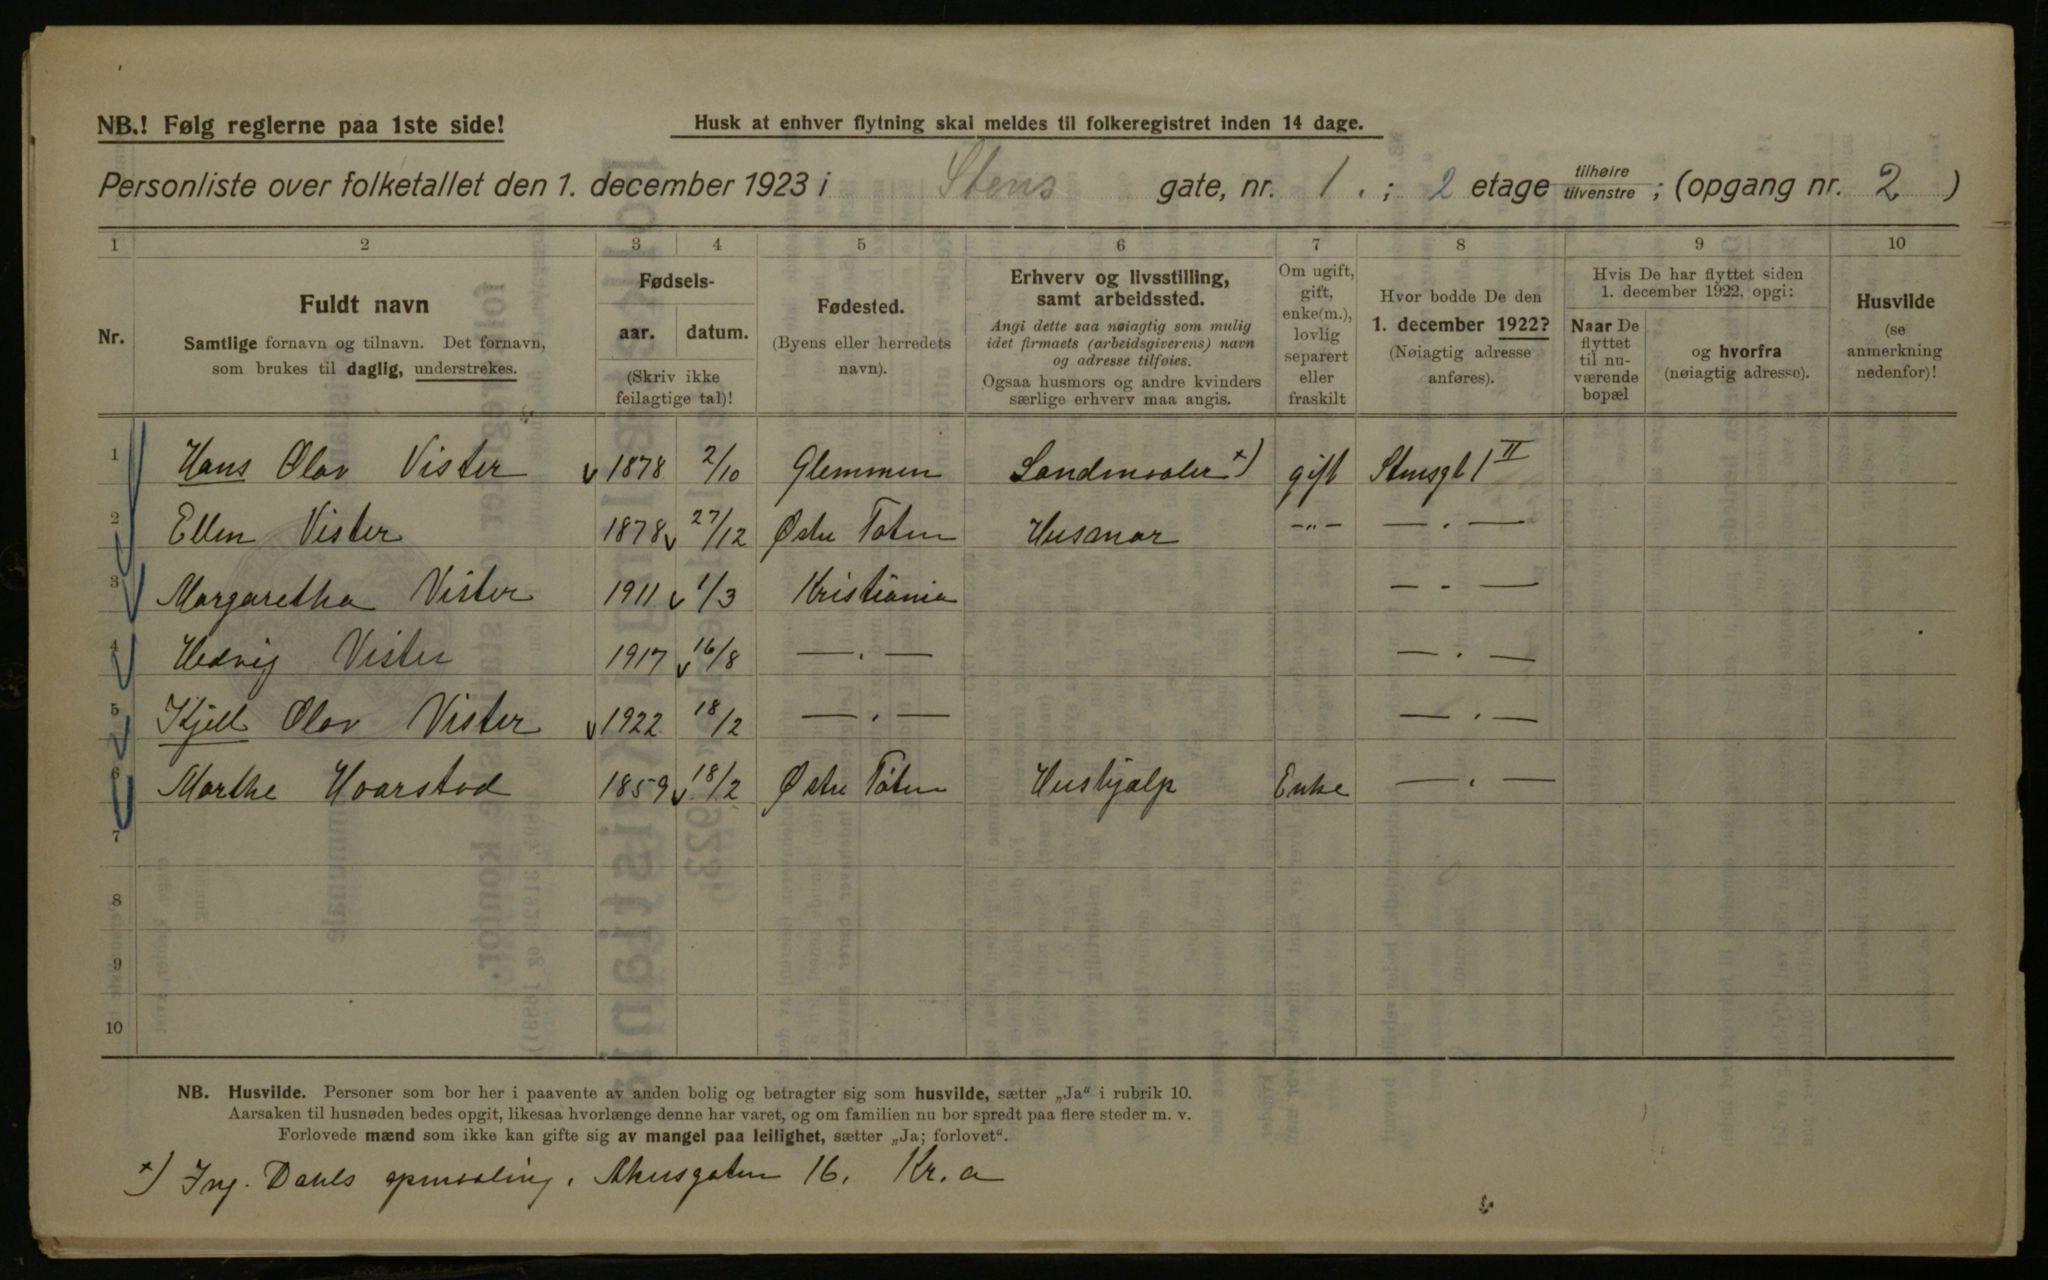 NB.! Følg reglerne paa 1ste side!
Husk at enhver flytning skal meldes til folkeregistret inden 14 dage.
Personliste over folketallet den 1. december 1923 i Stens gate, nr. 1. ; 2 etage tilhøire tilvenstre ; (opgang nr. 2 )
1 2 3 4 5 6 7 8 9 10
Nr.
Fuldt navn
Samtlige fornavn og tilnavn. Det fornavn,
som brukes til daglig, understrekes.
Fødsels-
aar. datum.
(Skriv ikke
feilagtige tal)!
Fødested.
(Byens eller herredets
navn).
Erhverv og livsstilling,
samt arbeidssted.
Angi dette saa nøiagtig som mulig
idet firmaets (arbeidsgiverens) navn
og adresse tilføies.
Ogsaa husmors og andre kvinders
særlige erhverv maa angis.
Om ugift,
gift,
enke(m.),
lovlig
separert
eller
fraskilt
Hvor bodde De den
1. december 1922?
(Nøiagtig adresse
anføres).
Hvis De har flyttet siden
1. december 1922, opgi:
Naar De
flyttet
til nu-
værende
bopæl
og hvorfra
(nøiagtig adresse).
Husvilde
(se
anmerkning
nedenfor)!
1 Hans Olav Vister 1878 2/10 Glemmen Landmaaler +) gift Stensgt 1 II
2 Ellen Vister 1878 27/12 Østre Toten Husmor -"- — . —
3 Margaretha Vister 1911 1/3 Kristiania — . —
4 Hedvig Vister 1917 16/8 — . — — . —
5 Kjell Olav Vister 1922 18/2 — . — — . —
6 Marthe Haarstad 1859 18/2 Østre Toten Hushjælp Enke — . —
7
8
9
10
NB. Husvilde. Personer som bor her i paavente av anden bolig og betragter sig som husvilde, sætter „Ja" i rubrik 10.
Aarsaken til husnøden bedes opgit, likesaa hvorlænge denne har varet, og om familien nu bor spredt paa flere steder m. v.
Forlovede mænd som ikke kan gifte sig av mangel paa leilighet, sætter „Ja; forlovet".
+) Ing. Dahls opmaaling, Akersgaten 16. Kr.a